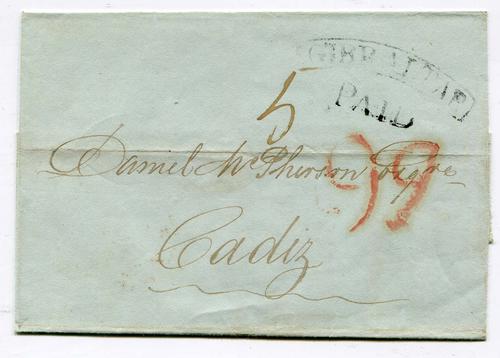 GIBRALTAR
PAID
5
Daniel McPherson Esqre
Cadiz